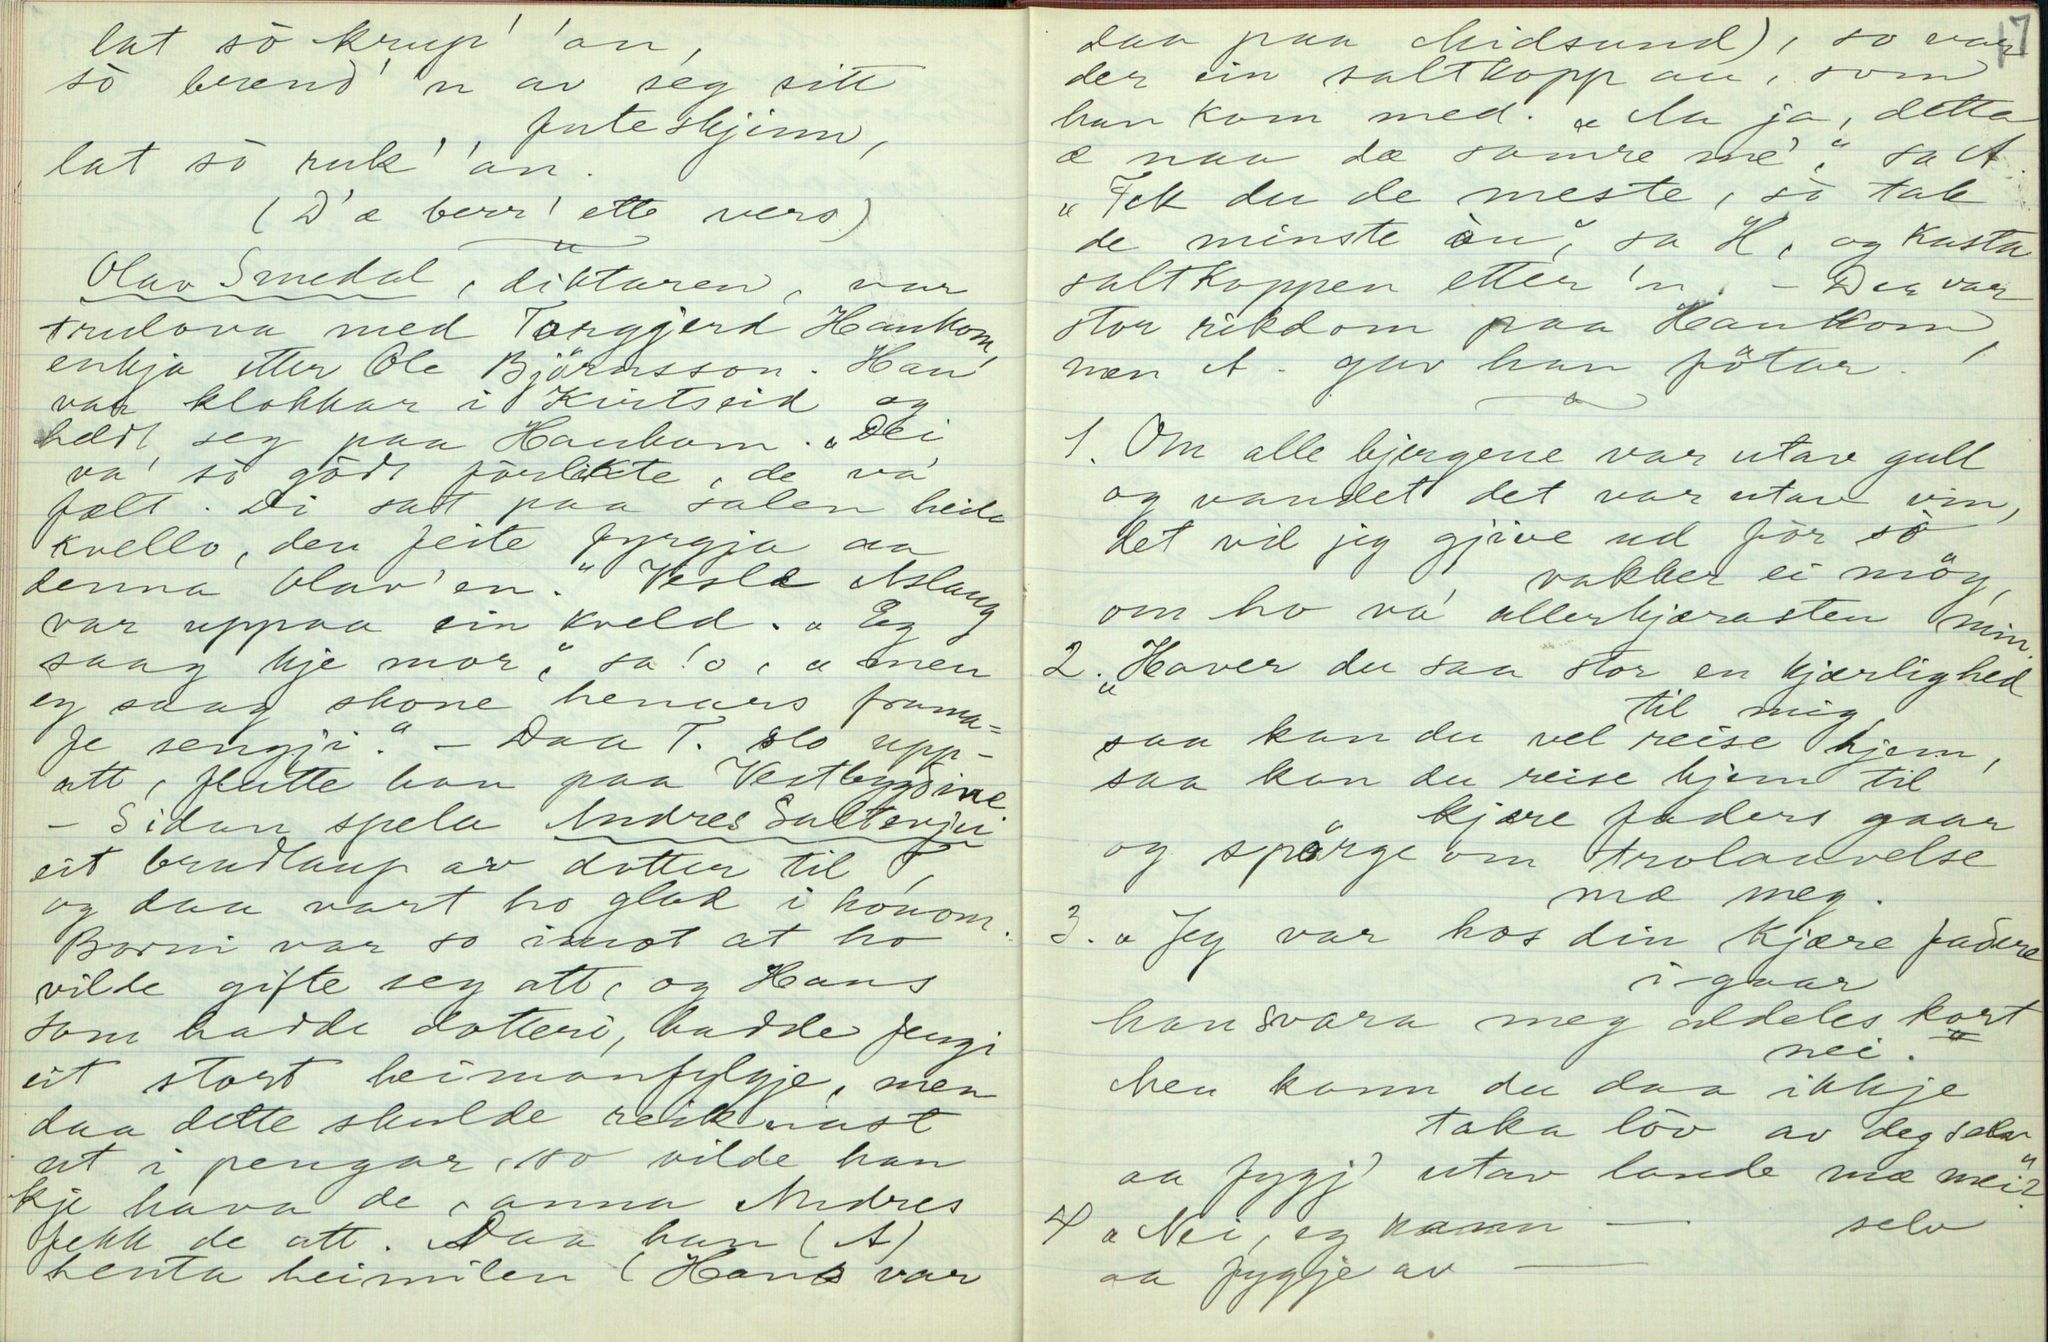 lat sò krup' 'an,
sò brænd' 'n av seg sitt
futeskjinn,
lat sò ruk' 'an.
(D'æ berr' ette vers)
Olav Smedal, diktaren, var
trulova med Torgjerd Haukom,
enkja etter Ole Björnsson. Han
var klokkar i Kvitseid og
heldt seg paa Haukom. "Dei
va' so gödt förlikte, de va'
fælt. Di sat paa salen heile
kvello, den feite Fyrgja aa
denna Olav'en." Vesle Aslaug
var uppaa ein kveld. "Eg
saag kje mor", sa 'o, "men
eg saag skone hennars frama-
fe sengji." – Daa T. slo upp-
att, flutte han paa Vestbygdine
– Sidan spela Andres Saltenjui
eit brudlaup av dotter til T,
og daa vart ho glad i honom.
Borni var so imot at ho
vilde gifte seg att, og Hans
som hadde dotteri, hadde fengi
eit stort heimanfylgje, men
daa dette skulde reiknast
ut i pengar, so vilde han
kje hava de, anna Andres
fekk de att. Daa han (A)
henta heimilen (Hans var
17
daa paa Midsund), so var
der ein saltkopp au, som
han kom med. "Aa ja, detta
æ naa dæ somre me'," sa A.
"Fek du de meste, sò tak
de minste òu", sa H, og kasta
saltkoppen etter 'n. – Der var
stor rikdom paa Haukom,
men A. gav han fötar.
1. Om alle bjergene var utav gull
og vandet det var utav vin,
det vil jeg gjive ud för sò
vakker ei möy,
om ho va' allerkjærasten min.
2. "Haver du saa stor en kjærlighed
til mig,
saa kan du vel reise hjem,
saa kan du reise hjem til
kjære faders gaar
og spörge om trolauvelse
mæ meg.
3. "Jeg var hos din kjære fadere
i gaar
han svara meg aldeles kort
nei."
Men kann du daa ikkje
taka löv av deg selv
aa fygj' utav lande mæ mei?"
4 "Nei, eg kann — selv
aa fygje av —